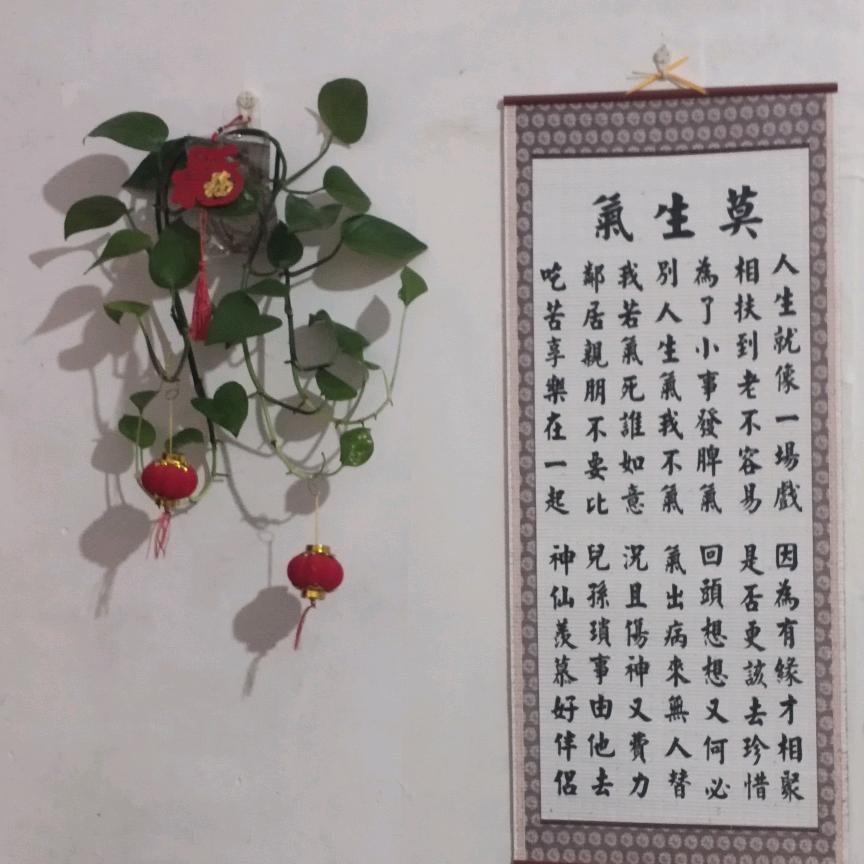 莫生氣
人生就像一場戲
因為有緣才相聚
相扶到老不容易
是否更該去珍惜
為了小事發脾氣
回頭想想又何必
別人生氣我不氣
氣出病來無人替
我若氣死誰如意
況且傷神又費力
鄰居親朋不要比
兒孫瑣事由他去
吃苦享樂在一起
神仙羨慕好伴侶